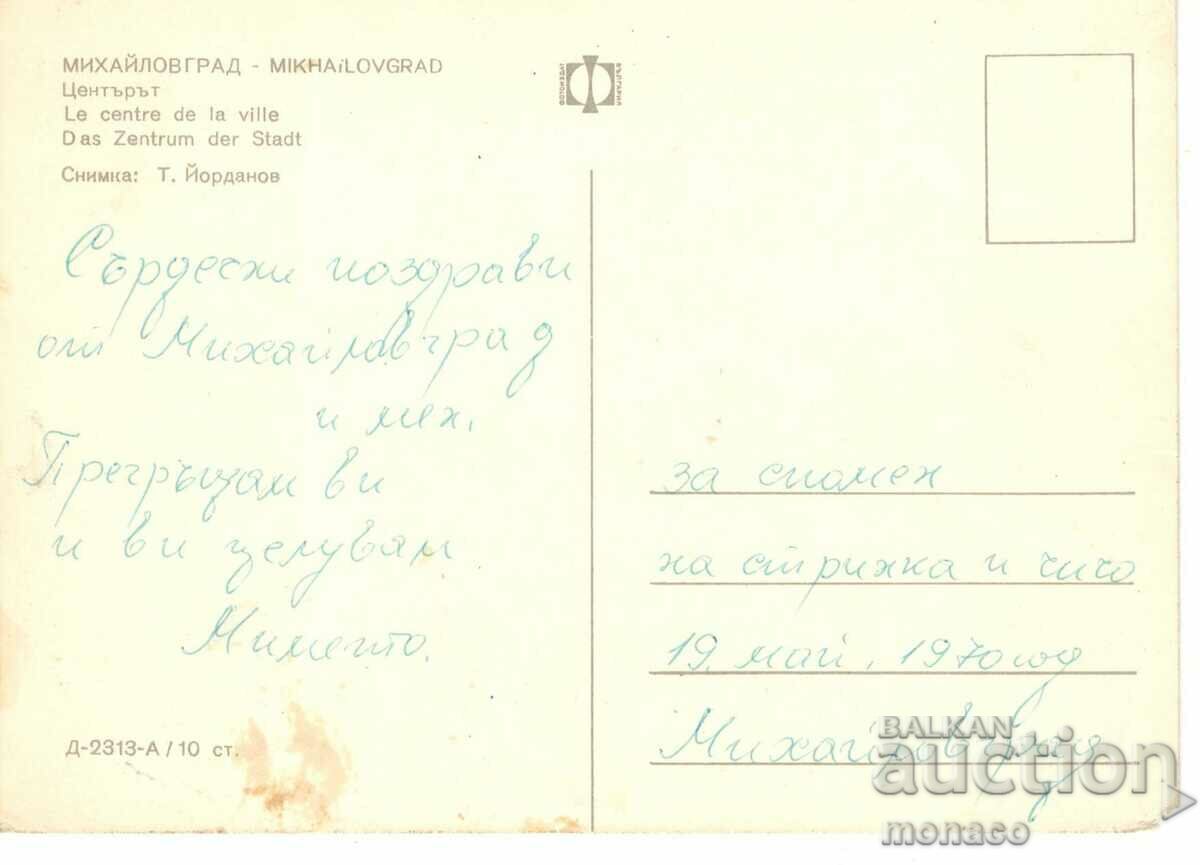 МИХАЙЛОВГРАД - MIKHAÏLOVGRAD
Центърът
Le centre de la ville
Das Zentrum der Stadt
Снимка: Т. Йорданов
ФОТОИЗДАТ
БЪЛГАРИЯ
Сърдечни поздрави
от Михайловград
и мен.
Прегръщам ви
и ви целувам
Мимето.
Д-2313-А / 10 ст.
за спомен
на стринка и чичо
19. май, 1970 год
Михайловград
BALKAN
auction
monaco